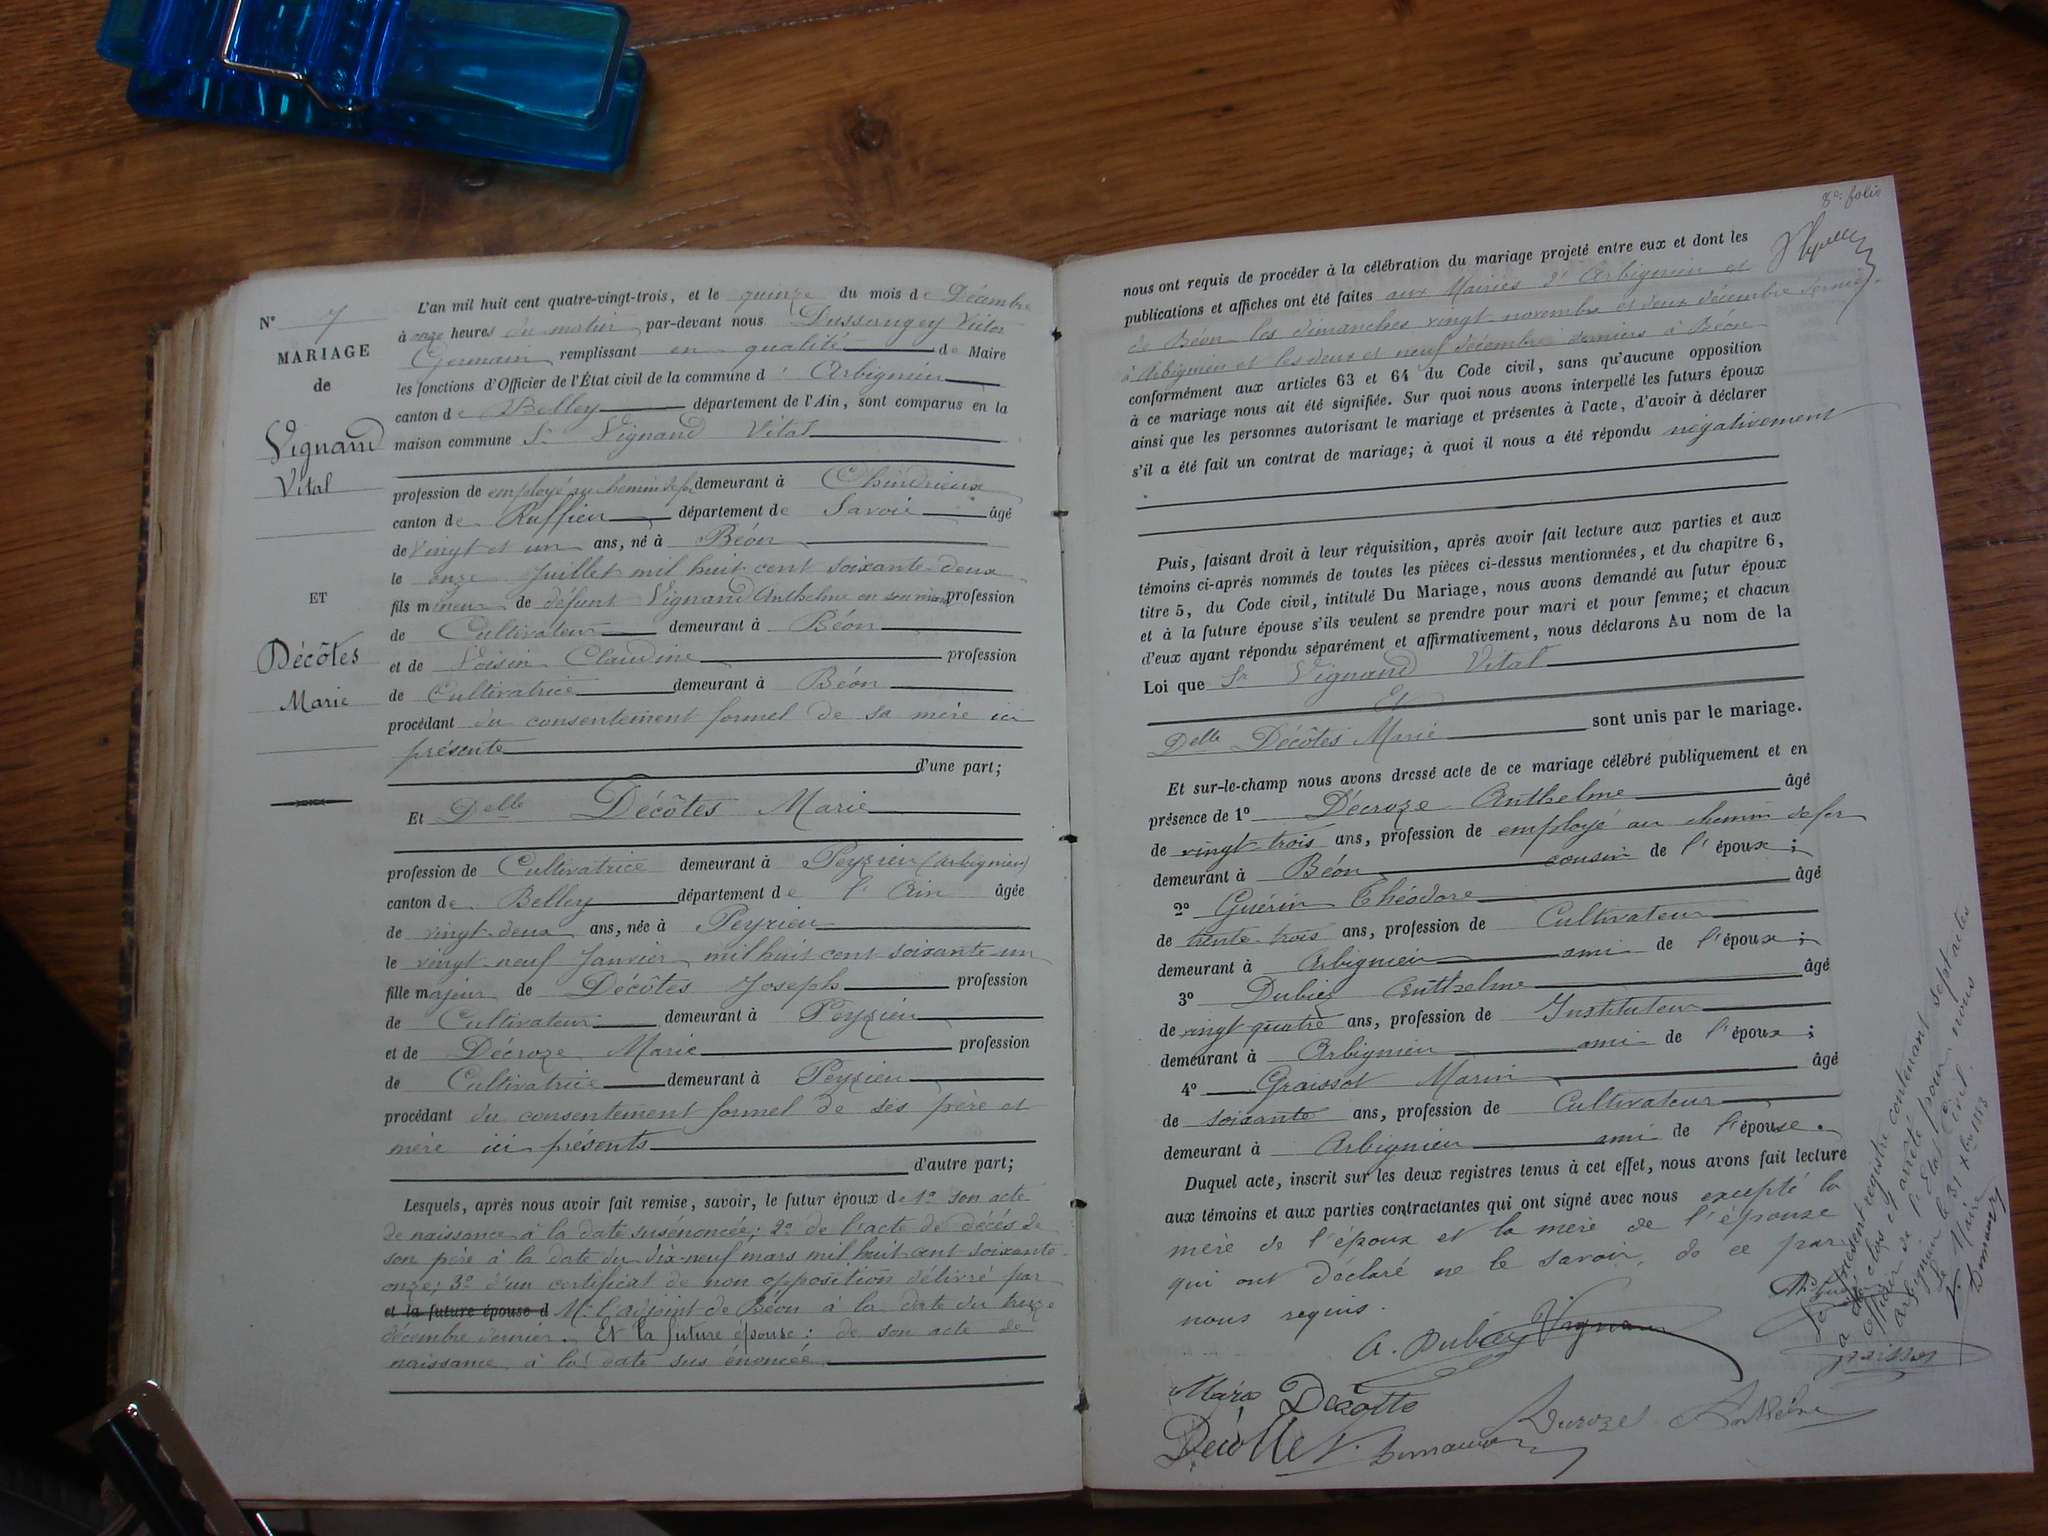 N° 7
MARIAGE
de
Vignand
Vital
ET
Décôtes
Marie
L'an mil huit cent quatre-vingt-trois, et le quinze du mois de Décembre
à onze heures du matin, par-devant nous Dussaugey Victor
Germain remplissant en qualité de Maire
les fonctions d'Officier de l'État civil de la commune d' Arbignieu
canton de Belley département de l'Ain, sont comparus en la
maison commune Sr Vignand Vital
profession de employé au chemin de fer demeurant à Chindrieux
canton de Ruffieu département de Savoie âgé
de vingt et un ans, né à Béon
le onze Juillet mil huit cent soixante-deux
fils mineur de défunt Vignand Anthelme en son vivant profession
de Cultivateur demeurant à Béon
et de Voisin Claudine profession
de Cultivatrice demeurant à Béon
procédant du consentement formel de sa mère ici
présente
d'une part;
Et Delle Décôtes Marie
profession de Cultivatrice demeurant à Peyzieu (Arbignieu)
canton de Belley département de l'Ain âgée
de vingt-deux ans, née à Peyzieu
le vingt-neuf Janvier mil huit cent soixante-un
fille majeur de Décôtes Joseph profession
de Cultivateur demeurant à Peyzieu
et de Décroze Marie profession
de Cultivatrice demeurant à Peyzieu
procédant du consentement formel de ses père et
mère ici présents
d'autre part;
Lesquels, après nous avoir fait remise, savoir, le futur époux de 1° son acte
de naissance à la date susénoncée; 2° de l'acte de décès de
son père à la date du dix-neuf mars mil huit cent soixante-
onze; 3° d'un certificat de non opposition délivré par
et la future épouse d Mr l'adjoint de Béon à la date du treize
décembre dernier. Et la future épouse: de son acte de
naissance à la date sus énoncée
8e folio
nous ont requis de procéder à la célébration du mariage projeté entre eux et dont les
publications et affiches ont été faites aux Mairies d'Arbignieu et
de Béon les dimanches vingt novembre et deux décembre dernier
à Arbignieu et les deux et neuf décembre derniers à Béon
conformément aux articles 63 et 64 du Code civil, sans qu'aucune opposition
à ce mariage nous ait été signifiée. Sur quoi nous avons interpellé les futurs époux
ainsi que les personnes autorisant le mariage et présentes à l'acte, d'avoir à déclarer
s'il a été fait un contrat de mariage; à quoi il nous a été répondu négativement
Puis, faisant droit à leur réquisition, après avoir fait lecture aux parties et aux
témoins ci-après nommés de toutes les pièces ci-dessus mentionnées, et du chapitre 6,
titre 5, du Code civil, intitulé Du Mariage, nous avons demandé au futur époux
et à la future épouse s'ils veulent se prendre pour mari et pour femme; et chacun
d'eux ayant répondu séparément et affirmativement, nous déclarons Au nom de la
Loi que Sr Vignand Vital
Et
Delle Décôtes Marie sont unis par le mariage.
Et sur-le-champ nous avons dressé acte de ce mariage célébré publiquement et en
présence de 1° Décroze Anthelme âgé
de vingt-trois ans, profession de employé au chemin de fer
demeurant à Béon cousin de l'époux;
2° Guérin Théodore âgé
de trente-trois ans, profession de Cultivateur
demeurant à Arbignieu ami de l'époux;
3° Dubiez Anthelme âgé
de vingt quatre ans, profession de Instituteur
demeurant à Arbignieu ami de l'époux;
4° Graissot Marin âgé
de soixante ans, profession de Cultivateur
demeurant à Arbignieu ami de l'épouse.
Duquel acte, inscrit sur les deux registres tenus à cet effet, nous avons fait lecture
aux témoins et aux parties contractantes qui ont signé avec nous excepté la
mère de l'époux et la mère de l'épouse
qui ont déclaré ne le savoir, de ce par
nous requis.
A. Dubiez Vignand
Marie Décotte
Décotte
Le présent registre contenant sept actes
a été clos et arrêté par nous
officier de l'Etat civil
Arbignieu le 31 Xbre 1883
Le Maire